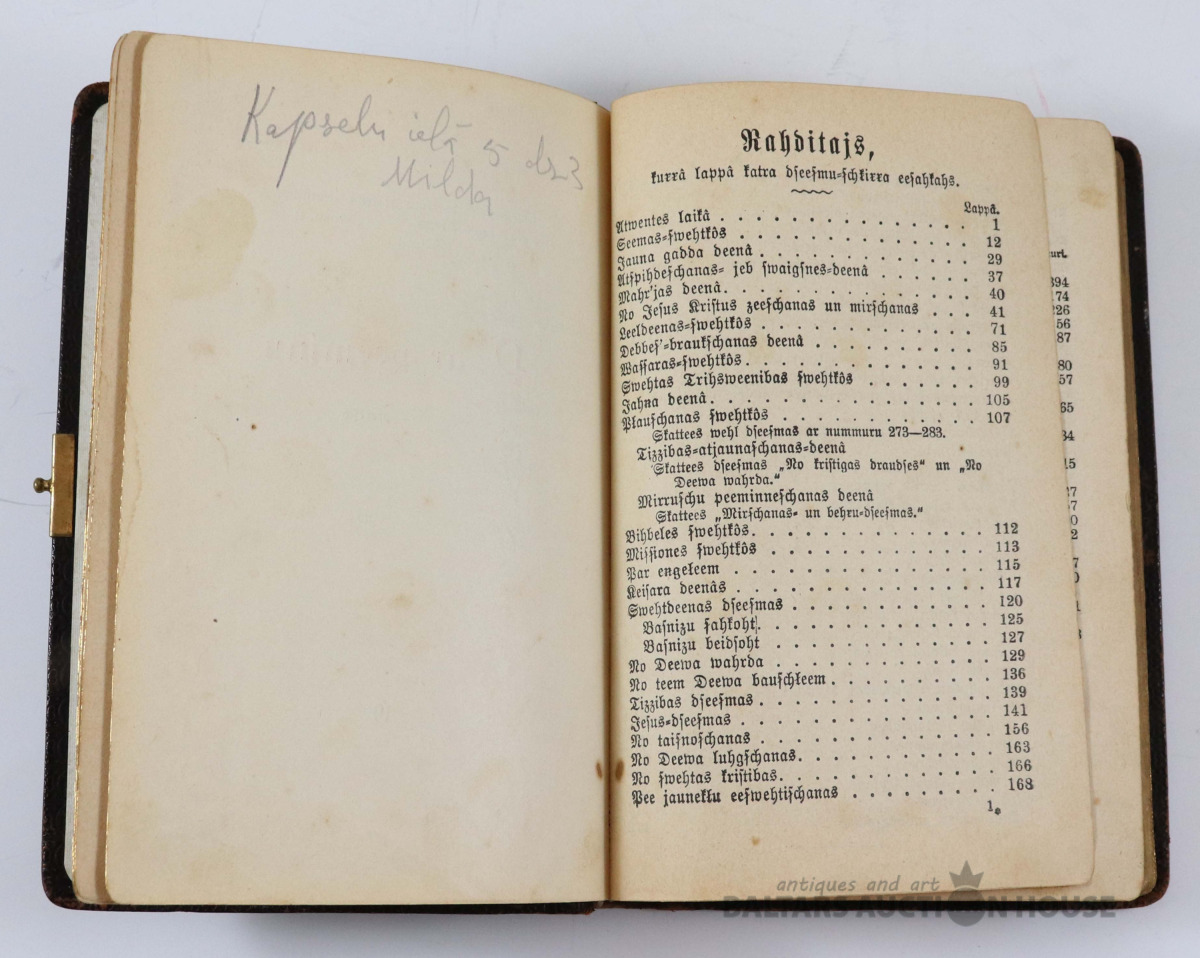 Kapseļu ielā 5 dz 3
Milda
Rahditajs,
kurrâ lappâ katra dseesmu-schkirra eesahkahs.
Lappâ.
Atwentes laikâ . . . . . . . . . . . . . . 1
Seemas-swehtkôs . . . . . . . . . . . . . 12
Jauna gadda deenâ . . . . . . . . . . . . 29
Atspihdeschanas- jeb swaigsnes-deenâ . . . . . 37
Mahr'jas deenâ. . . . . . . . . . . . . . 40
No Jesus Kristus zeeschanas un mirschanas . . . 41
Leeldeenas-swehtkôs . . . . . . . . . . . 71
Debbes'-braukschanas deenâ . . . . . . . . . 85
Wassaras-swehtkôs. . . . . . . . . . . . . 91
Swehtas Trihsweenibas swehtkôs . . . . . . 99
Jahna deenâ. . . . . . . . . . . . . . . 105
Pļauschanas swehtkôs . . . . . . . . . . . 107
Skattees wehl dseesmas ar nummuru 273—283.
Tizzibas-atjaunaschanas-deenâ
Skattees dseesmas „No kristigas draudses“ un „No
Deewa wahrda.“
Mirruschu peeminneschanas deenâ
Skattees „Mirschanas- un behru-dseesmas.“
Bihbeles swehtkôs. . . . . . . . . . . . . 112
Missiones swehtkôs . . . . . . . . . . . . 113
Par engeļeem . . . . . . . . . . . . . . 115
Keisara deenâs . . . . . . . . . . . . . . 117
Swehtdeenas dseesmas . . . . . . . . . . . 120
Basnizu sahkoht. . . . . . . . . . . . . 125
Basnizu beidsoht . . . . . . . . . . . . 127
No Deewa wahrda . . . . . . . . . . . . 129
No teem Deewa bauschļeem. . . . . . . . . 136
Tizzibas dseesmas . . . . . . . . . . . . . 139
Jesus-dseesmas . . . . . . . . . . . . . . 141
No taisnoschanas . . . . . . . . . . . . . 156
No Deewa luhgschanas. . . . . . . . . . . 163
No swehtas kristibas. . . . . . . . . . . . 166
Pee jaunekļu eeswehtischanas . . . . . . . . 168
1*
antiques and art
BALTARS AUCTION HOUSE